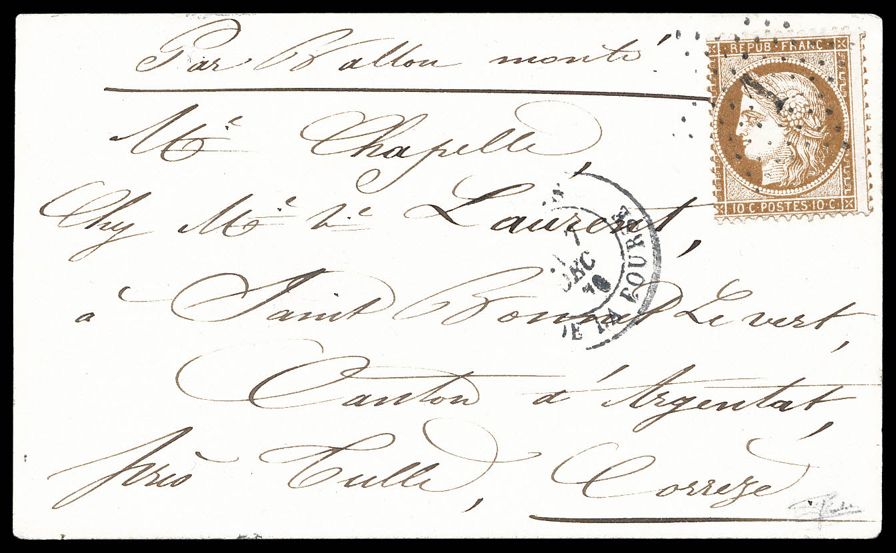 Par Ballon monté
REPUB. FRANC.
Mr. Chapelle,
Chez Mr. Vve. Laurent,
7
DEC
70
DE LA BOURSE
10 C. POSTES 10 C.
à Saint Bonnet Le vert,
Canton d'Argentat,
près Tulle, Correze